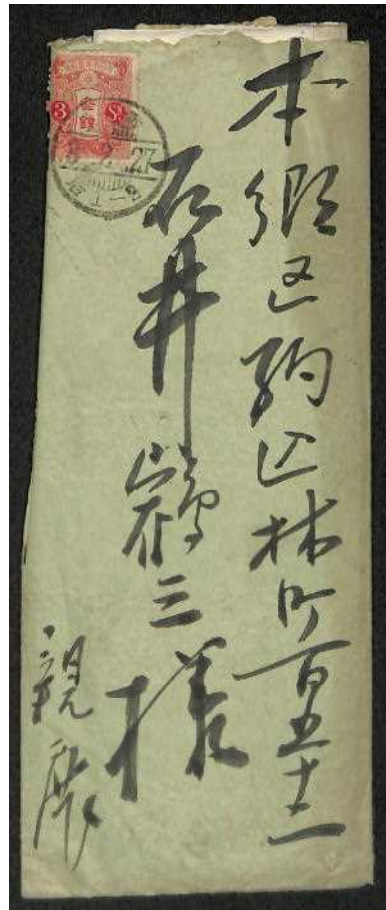 本郷区駒込林町百五十二
石井鶴三様
親展
3
27